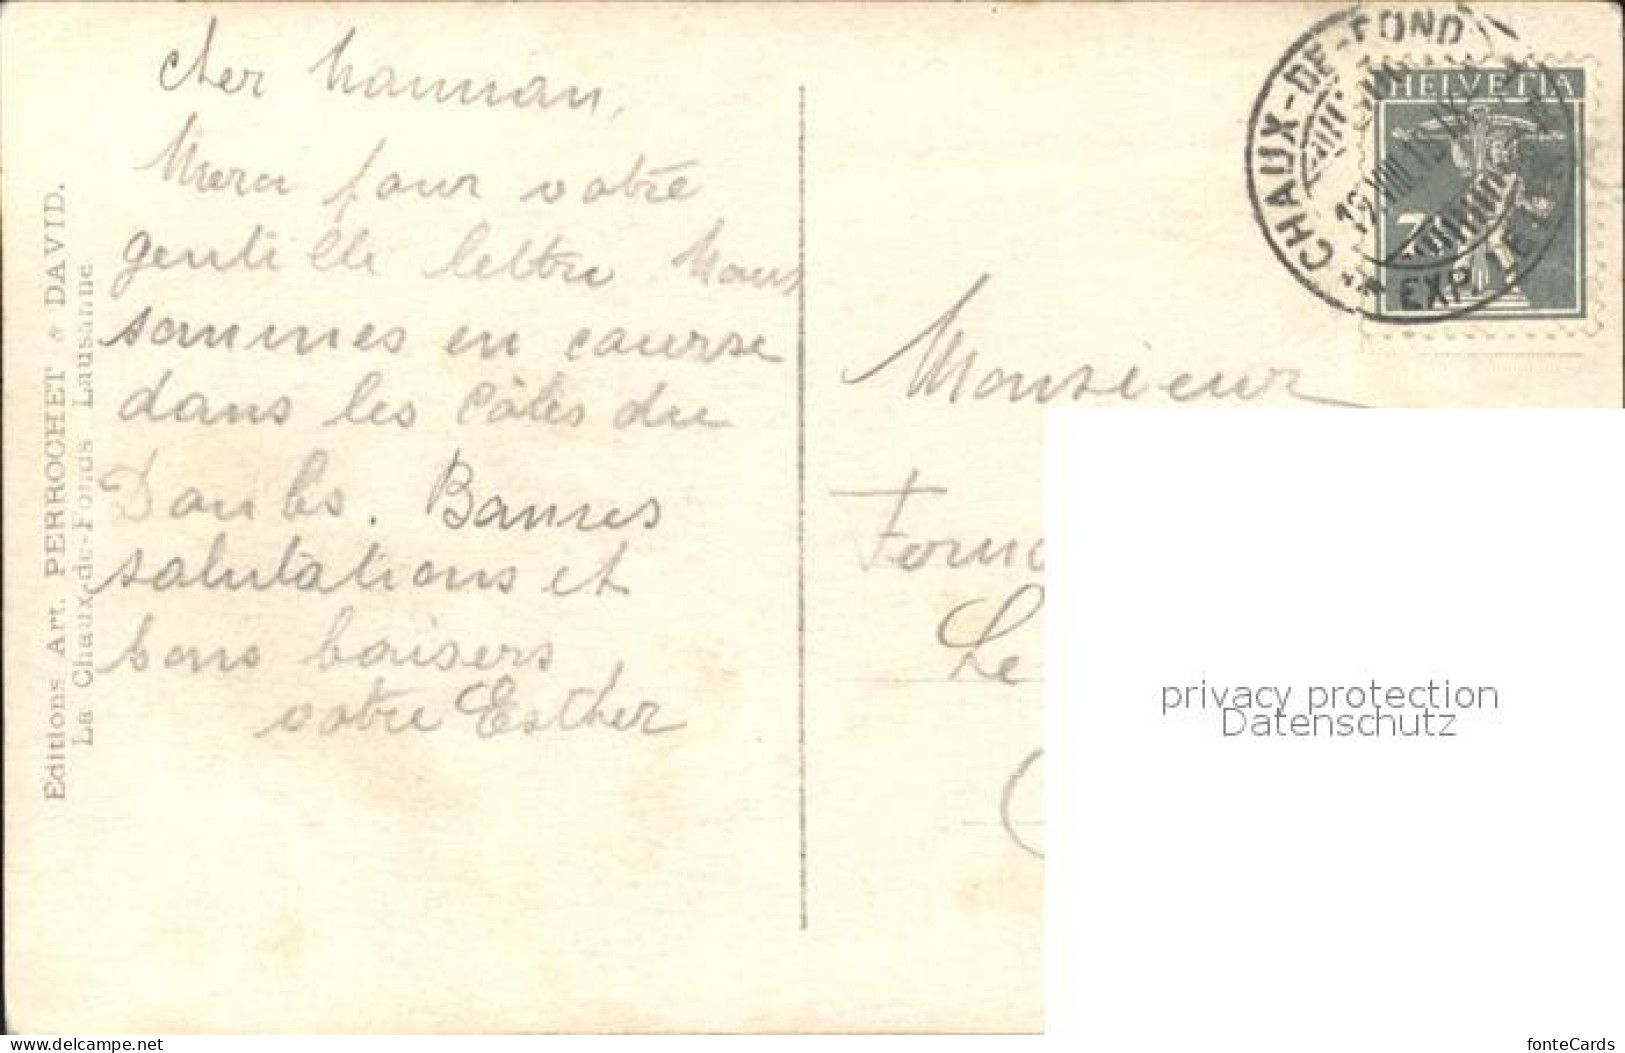 cher Maman,
Merci pour votre
gentille lettre. Nous
sommes en course
dans les Côtes du
Doubs. Bonnes
salutations et
bons baisers
votre Esther
Editions Art. PERROCHET & DAVID.
La Chaux-de-Fonds Lausanne
CHAUX-DE-FOND
EXP. LE
HELVETIA
Monsieur
Le
privacy protection
Datenschutz
www.delcampe.net
fonteCards